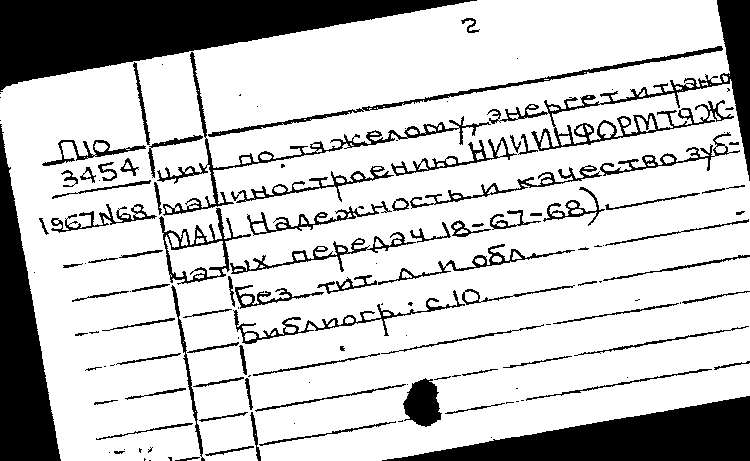 2
П10
3454 ции по тяжелому, энергет и трансп
машиностроению НИИИНФОРМТЯЖ-
1967N68 МАШ Надежность и качество зуб-
чатых передач 18-67-68).
Без тит. л. и обл.
Библиогр.: с. 10.